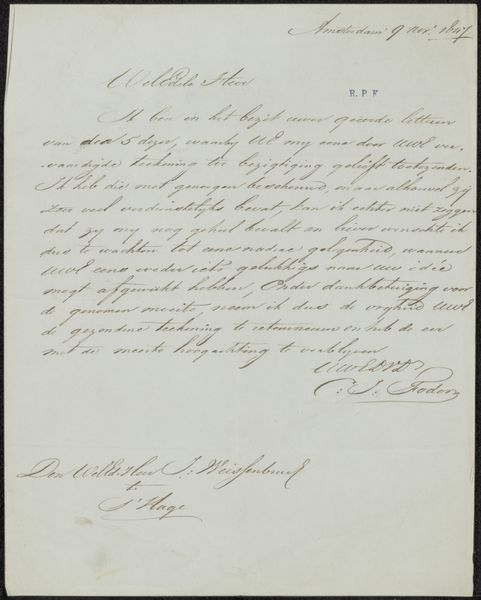 Amsterdam 9 Nov. 1847
WelEdele Heer
R.P.K
Ik ben in het bezit uwer geeerde letteren
van den 5 dezer, waarby UE my eene door UWE ver-
vaardigde teekening ter bezigtiging gelieft toetezenden.
Ik heb die met genoegen beschouwd, maar alhoewel zy
zeer veel verdienstelyks bevat, kan ik echter niet zeggen
dat zy my nog geheel bevalt en liever wenschte ik
dus te wachten tot eene nadere gelegenheid, wanneer
UWE eens weder iets gelukkigs naar uw idée
mogt afgewerkt hebben, Onder dankbetuiging voor
de genomen moeite, neem ik dus de vryheid UWE
de gezondene teekening te retourneeren en heb de eer
met de meeste hoogachting te verblyven
UWEDVD
C: J: Fodor
Den WelEd. Heer J: Weissenbruch
te
S'Hage